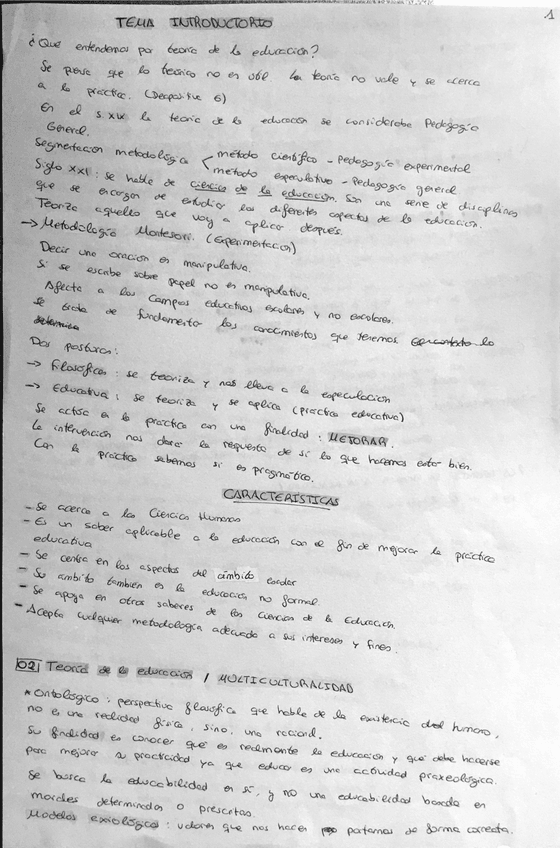 1
TEMA INTRODUCTORIO
¿Qué entendemos por teoría de la educación?
Se piensa que lo teórico no es útil. La teoría no vale y se acerca
a la práctica. (Diapositiva 6)
En el s. XIX la teoría de la educación se consideraba Pedagogía
General.
Segmentación metodológica método científico - Pedagogía experimental
método especulativo - Pedagogía general
Siglo XXI: se habla de ciencias de la educación. Son una serie de disciplinas
que se encargan de estudiar los diferentes aspectos de la educación.
Teorizo aquello que voy a aplicar después.
→ Metodología Montesori. (Experimentación)
Decir una oración es manipulativa.
Si se escribe sobre papel no es manipulativa.
Afecta a los campos educativos escolares y no escolares.
Se trata de fundamentar los conocimientos que tenemos. lo
Dos posturas:
→ Filosófica: se teoriza y nos lleva a la especulación
→ Educativa: se teoriza y se aplica (práctica educativa)
Se actúa en la práctica con una finalidad: MEJORAR.
La intervención nos dará la respuesta de si lo que hacemos está bien.
Con la práctica sabemos si es pragmático.
CARACTERISTICAS
- Se acerca a las Ciencias Humanas
- Es un saber aplicable a la educación con el fin de mejorar la práctica
educativa
- Se centra en los aspectos del ámbito escolar
- Su ámbito también es la educación no formal.
- Se apoya en otros saberes de las Ciencias de la Educación.
- Acepta cualquier metodología adecuada a sus intereses y fines.
02 Teoría de la educación / MULTICULTURALIDAD
* Ontológico: perspectiva filosófica que habla de la existencia del humano,
no es una realidad física, sino, una racional.
Su finalidad es conocer que es realmente la educación y qué debe hacerse
para mejorar su practicidad ya que educar es una actividad praxeológica.
Se busca la educabilidad en sí, y no una educabilidad basada en
morales determinados o prescritas.
Modelos axiológicos: valores que nos hacen portarnos de forma correcta.